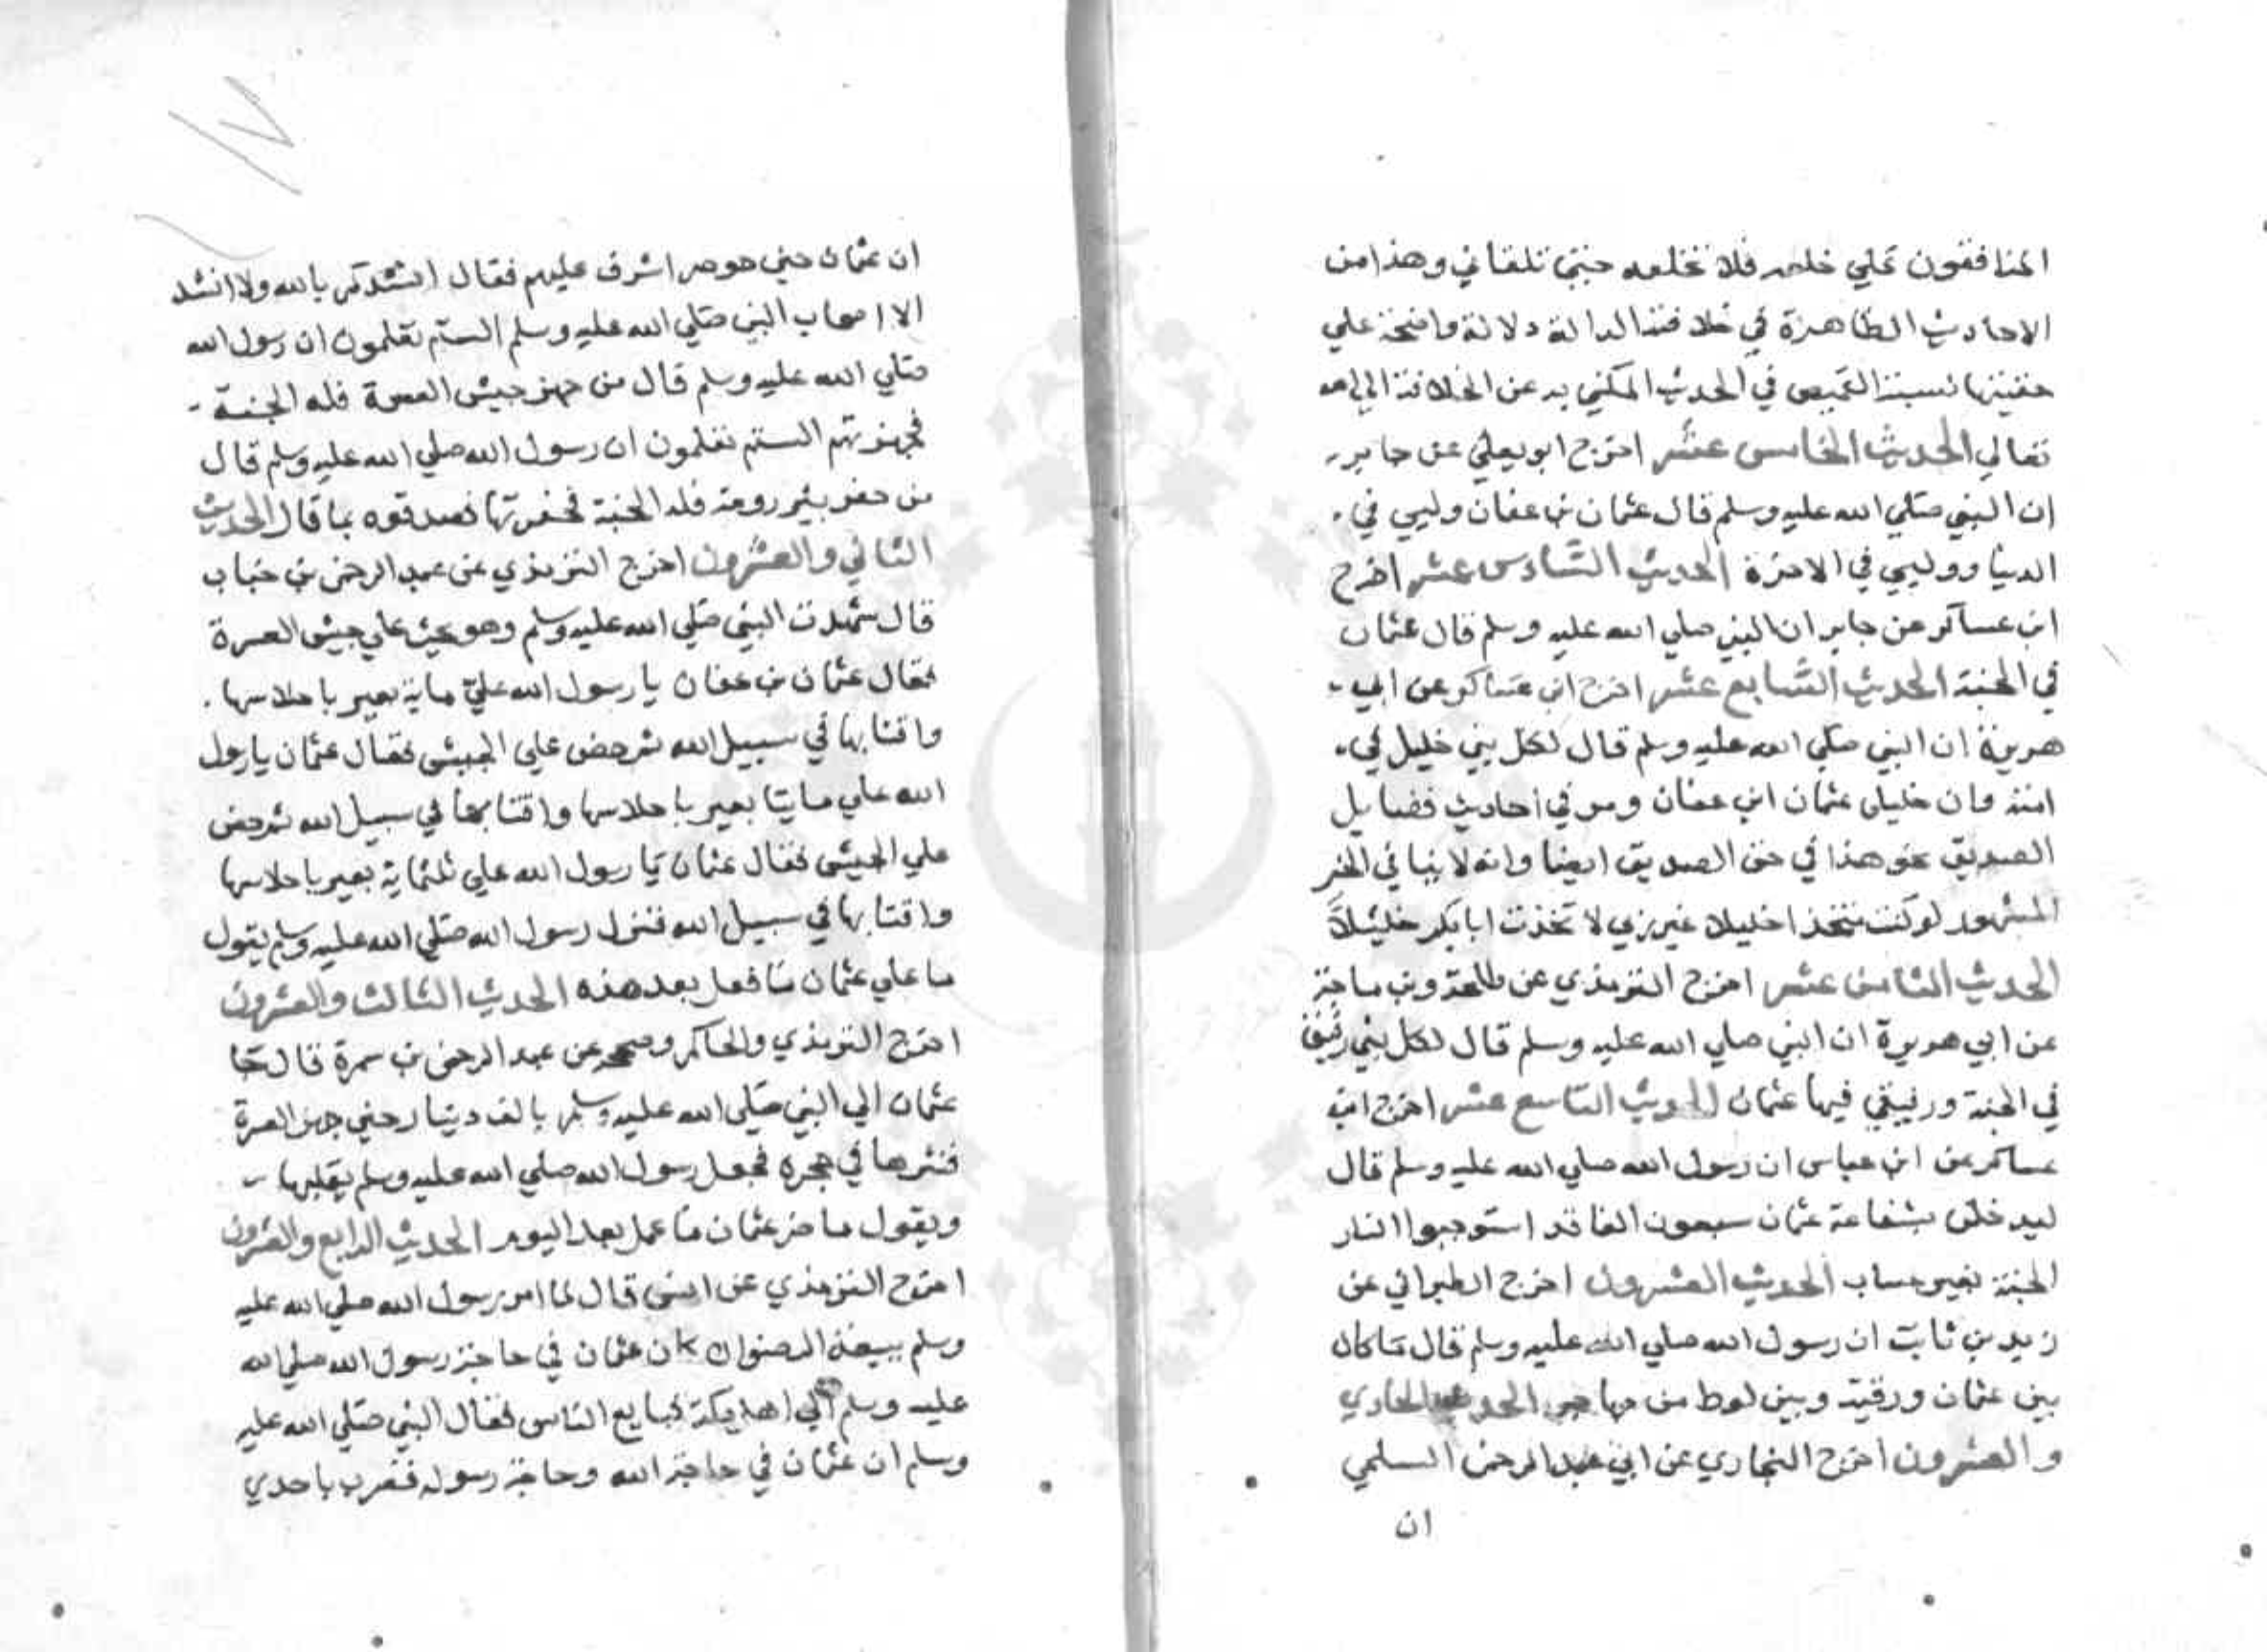 المنافقون علي خلعه فلا تخلعه حتي تلقاني وهذا من
الاحاديث الظاهرة في خلافته الدالة دلالة واضحة علي
حقيتها نسبة القميص في الحديث المكني به عن الخلافة الي الله
تعالي الحديث الخامس عشر اخرج ابو يعلي عن جابر
ان النبي صلي الله عليه وسلم قال عثمان بن عفان وليي في
الدنيا ووليي في الاخرة الحديث السادس عشر اخرج
ابن عساكر عن جابر ان النبي صلي الله عليه وسلم قال عثمان
في الجنة الحديث السابع عشر اخرج ابن عساكر عن ابي
هريرة ان النبي صلي الله عليه وسلم قال لكل نبي خليل في
امته وان خليلي عثمان ابن عفان ومر في احاديث فضايل
الصديق نحو هذا في حق الصديق ايضا وانه لا ينافي الخبر
المشهور لو كنت متخذا خليلا غير ربي لاتخذت ابا بكر خليلا
الحديث الثامن عشر اخرج الترمذي عن طلحة وبن ماجة
عن ابي هريرة ان النبي صلي الله عليه وسلم قال لكل نبي رفيق
في الجنة ورفيقي فيها عثمان الحديث التاسع عشر اخرج ابن
عساكر عن ابن عباس ان رسول الله صلي الله عليه وسلم قال
ليدخلن بشفاعة عثمان سبعون الفا قد استوجبوا النار
الجنة بغير حساب الحديث العشرون اخرج الطبراني عن
زيد بن ثابت ان رسول الله صلي الله عليه وسلم قال ما كان
بين عثمان ورقية وبين لوط من مهاجر الحديث الحادي
والعشرون اخرج البخاري عن ابي عبد الرحمن السلمي
ان
ان عثمان حين حوصر اشرف عليهم فقال انشدكم بالله ولا انشد
الا اصحاب النبي صلي الله عليه وسلم الستم تعلمون ان رسول الله
صلي الله عليه وسلم قال من جهز جيش العسرة فله الجنة
فجهزتهم الستم تعلمون ان رسول الله صلي الله عليه وسلم قال
من حفر بئير رومة فله الجنة فحفرتها فصدقوه بما قال الحديث
الثاني والعشرون اخرج الترمذي عن عبد الرحمن بن خباب
قال شهدت النبي صلي الله عليه وسلم وهو يحث علي جيش العسرة
فقال عثمان بن عفان يا رسول الله علي ماية بعير باحلاسها
واقتابها في سبيل الله ثم حض علي الجيش فقال عثمان يا رسول
الله علي مايتا بعير باحلاسها واقتابها في سبيل الله ثم حض
علي الجيش فقال عثمان يا رسول الله علي ثلثماية بعير باحلاسها
واقتابها في سبيل الله فنزل رسول الله صلي الله عليه وسلم يقول
ما علي عثمان ما فعل بعد هذه الحديث الثالث والعشرون
اخرج الترمذي والحاكم وصححه عن عبد الرحمن بن سمرة قال جا
عثمان الي النبي صلي الله عليه وسلم بالف دينار حين جهز العسرة
فنثرها في حجره فجعل رسول الله صلي الله عليه وسلم يقلبها
ويقول ما ضر عثمان ما عمل بعد اليوم الحديث الرابع والعشرون
اخرج الترمذي عن انس قال لما امر رسول الله صلي الله عليه
وسلم ببيعة الرضوان كان عثمان في حاجة رسول الله صلي الله
عليه وسلم الي اهل مكة فبايع الناس فقال النبي صلي الله عليه
وسلم ان عثمان في حاجة الله وحاجة رسوله فضرب باحدي